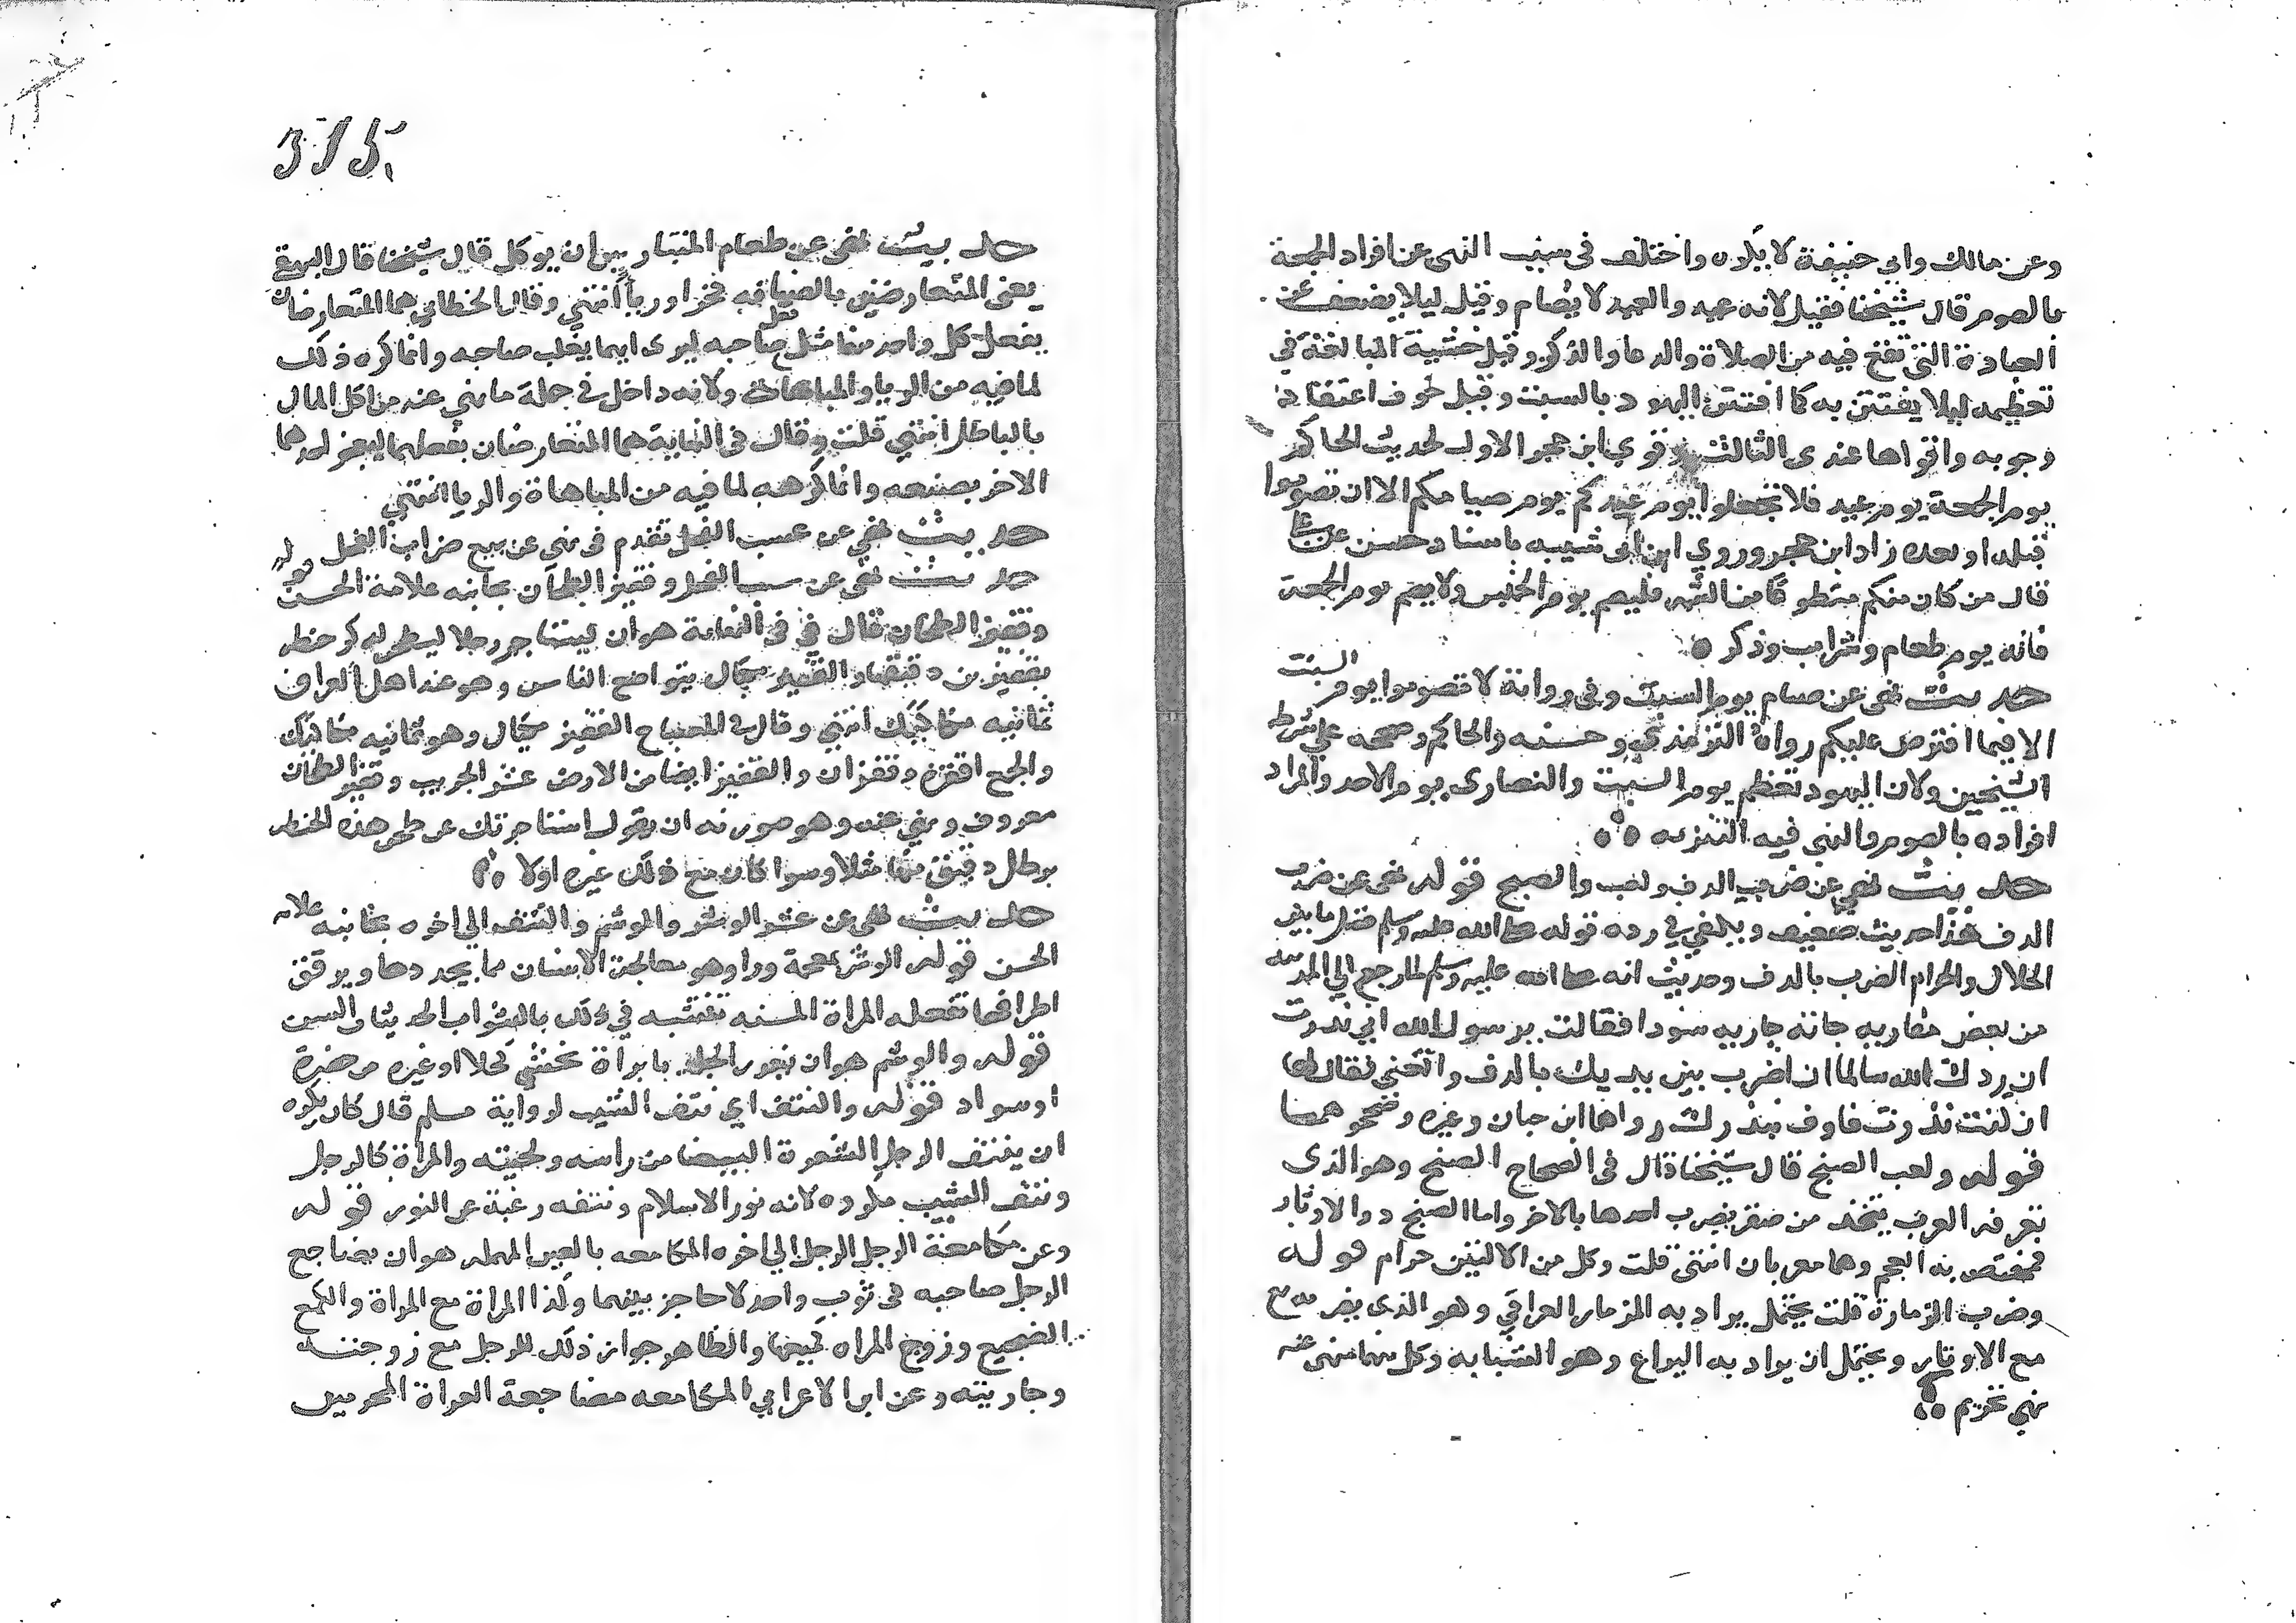 وعن مالك وابي حنيفة لا يكره واختلف في سبب النهي عن افراد الجمعة
بالصوم قال شيخنا فقيل لانه عيد والعيد لا يصام وقيل ليلا يضعف عن
العبادة التي تقع فيه من الصلاة والدعا والذكر وقيل خشية المبالغة في
تعظيمه ليلا يفتتن به كما افتتن اليهود بالسبت وقيل خوف اعتقاد
وجوبه واقواها عندي الثالث وقوي ابن حجر الاول لحديث الحاكم
يوم الجمعة يوم عيد فلا تجعلوا يوم عيدكم يوم صيامكم الا ان تصوموا
قبله او بعده زاد ابن حجر وروي ابن ابي شيبه باسناد حسن عن علي
قال من كان منكم متطوعا من الشهر فليصم يوم الخميس ولا يصم يوم الجمعة
فانه يوم طعام وشراب وذكر
حديث نهي عن صيام يوم السبت وفي رواية لا تصوموا يوم السبت
الا فيما افترض عليكم رواه الترمذي وحسنه والحاكم وصححه علي شرط
الشيخين ولان اليهود تعظم يوم السبت والنصاري يوم الاحد والمراد
افراده بالصوم والنهي فيه للتنزيه
حديث نهي عن ضرب الدف ولعب والصنج قوله نهي عن ضرب
الدف هذا حديث ضعيف ويكفي في رده قوله صلى الله عليه وسلم فصل ما بين
الحلال والحرام الضرب بالدف وحديث انه صلى الله عليه وسلم لما رجع الي المدينه
من بعض مغازيه جاته جاريه سودا فقالت يرسول الله اني نذرت
ان ردك الله سالما ان اضرب بين يديك بالدف واتغني فقال لها
ان كنت نذرت فاوف بنذرك رواها ابن حبان وغيره ونحوهما
قوله ولعب الصنج قال شيخنا قال في الصحاح الصنج وهو الذي
تعرفه العرب يتخذ من صفر يضرب احدها بالاخر واما الصنج ذو الاوتار
فمختص به العجم وهما معربان انتهى قلت وكل من الالتين حرام قوله
وضرب الزمارة قلت يحتمل يراد به المزمار العراقي وهو الذي يضرب به
مع الاوتار ويحتمل ان يراد به اليراع وهو الشبابه وكل منهما منهي عنه
نهي تحريم
315
حديث نهي عن طعام المتبارين ان يوكل قال شيخنا قال البيهقي
يعني المتعارضين بالضيافه فخرا ورياً انتهي وقال الخطابي هما المتعارضان
يفعل كل واحد منهما مثل فعل صاحبه ليري ايهما يغلب صاحبه وانما كره ذلك
لما فيه من الريا والمباهاة ولانه داخل في جملة ما نهي عنه من اكل المال
بالباطل انتهي قلت وقال في النهاية هما المتعارضان بفعلهما ليعجز احدهما
الاخر بصنيعه وانما كرهه لما فيه من المباهاة والريا انتهي
حديث نهي عن عسب الفحل تقدم في نهي عن بيع ضراب الفحل
حديث نهي عن عسب الفحل وقفيز الطحان بجانبه علامة الحسن قوله
وقفيز الطحان قال في النهاية هو ان يستاجر رجلا ليطحن له كر حنطه
بقفيز من دقيقها والقفيز مكيال يتواضع الناس وهو عند اهل العراق
ثمانيه مكاكيك انتهي وقال في المصباح القفيز مكيال وهو ثمانيه مكاكيك
والجمع اقفزة وقفزان والقفيز ايضا من الارض عشر الجريب وقفيز الطحان
معروف ونهي عنه وهو صورته ان يقول استاجرتك علي طحن هذه الحنطه
برطل دقيق منها مثلا وسوا كان مع ذلك غيره اولا
حديث نهي عن عشر الوشر والوشم والنتف الي اخره بجانبه علامه
الحسن قوله الوشر بمعجمة ورا وهو معالجة الاسنان بما يحددها ويرقق
اطرافها تفعله المراة المسنه تتشبه في ذلك بالشواب الحديثات السن
قوله والوشم هو ان يغرز الجلد بابرة ثم يحشي كحلا او غيره من خضرة
او سواد قوله والنتف اي نتف الشيب لرواية مسلم قال كان يكره
ان ينتف الرجل الشعرة البيضا من راسه ولحيته والمراة كالرجل
ونتف الشيب مكروه لانه نور الاسلام ونتفه رغبة عن النور قوله
وعن مكامعة الرجل الرجل الي اخره المكامعه بالعين المهمله هو ان يضاجع
الرجل صاحبه في ثوب واحد لا حاجز بينهما وكذا المراة مع المراة والكمع
الضجيع وزوج المراه كميعها والظاهر جواز ذلك للرجل مع زوجته
وجاريته وعن ابن الاعرابي المكامعه مضاجعة العراة المحرمين